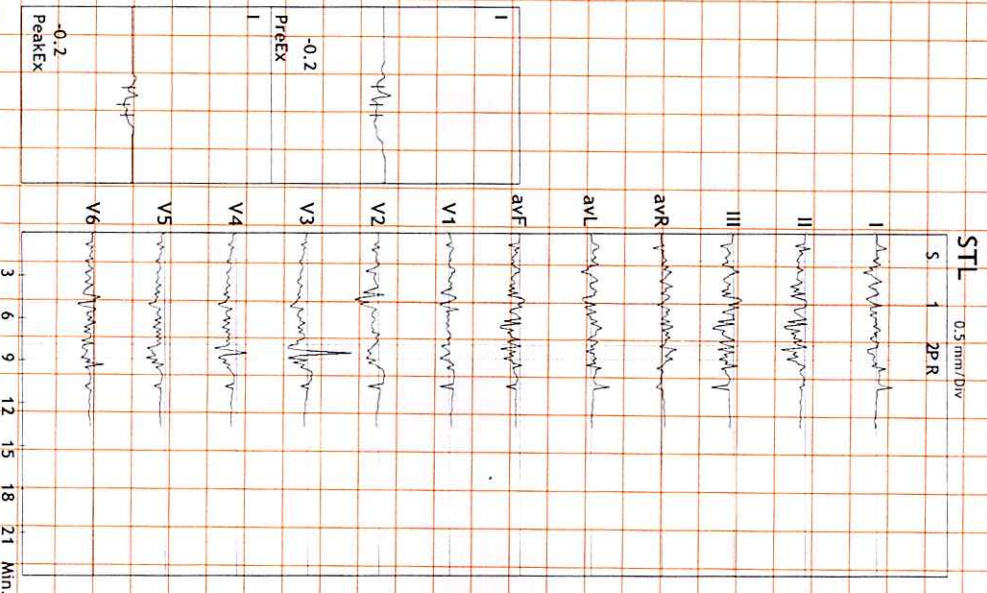 STL 0.5 mm/Div
S 1 2P R
I
II
III
avR
avL
avF
V1
V2
V3
V4
V5
V6
3 6 9 12 15 18 21 Min.
I
-0.2
PreEx
I
-0.2
PeakEx